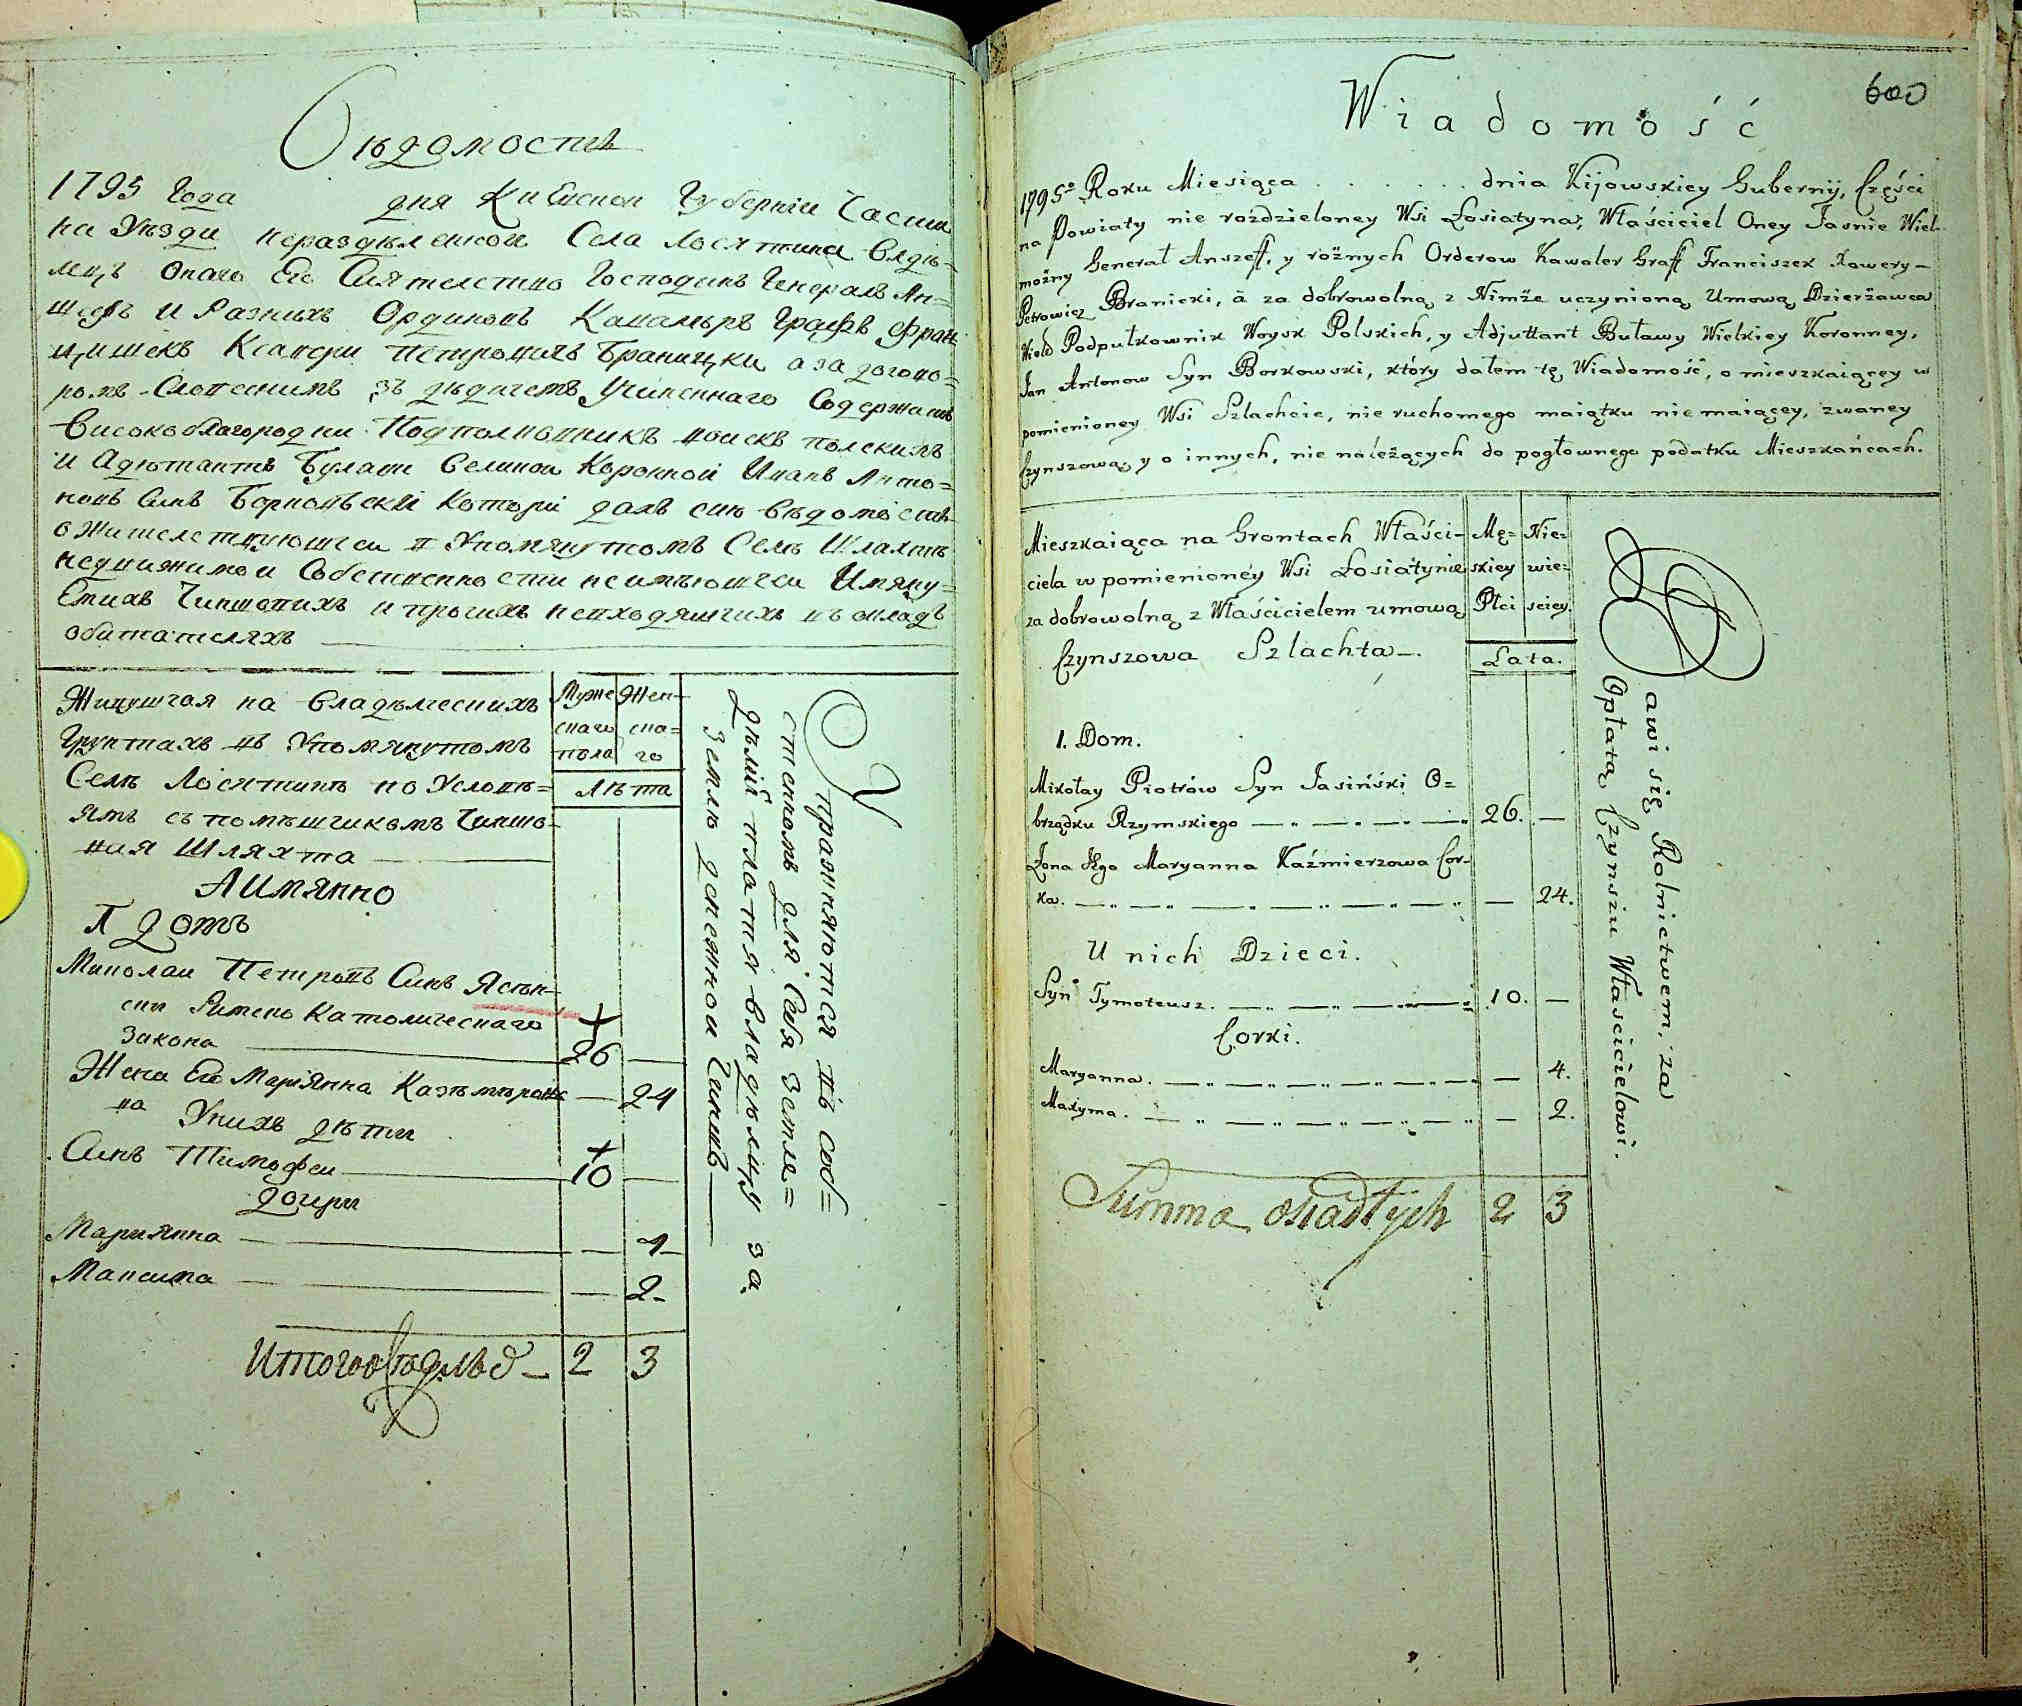 Вѣдомость
1795 Года дня Киевской Губернии Части
на Уезди нераздѣленной Села Лосятина Владѣ=
лецъ Онаго Его Сиятелство Господинъ Генералъ Ан=
шефъ и Разнихъ Ординовъ Кавалъръ Графъ Фран
цишекъ Ксавери Петровичъ Браницки а за догово=
ромъ Словеснимъ зъ Учиненнаго Содержатель
Високоблагородни Подполковникъ войскъ полскихъ
и Адютантъ Булави Великой Коронной Иванъ Анто=
новъ Синъ Борковъскій которій далъ сию Вѣдомость
о Жителствующеи в Упомянутомъ Селѣ Шляхтѣ
недвижимои Собственности неимѣющеи Имяну=
Емихъ Чиншовихъ и протчихъ невходящихъ въ окладъ
обитателяхъ
Живущая на Владѣлческихъ
Грунтахъ въ Упомянутомъ
Селѣ Лосятинѣ по Условѣ=
ямъ съ помѣщикомъ Чиншо=
вая Шляхта
Муже
скаго
пола
Жен=
ска=
го
Лѣта
А Имянно
1 Домъ
Миколаи Петровъ Синъ Ясѣн=
ски Римско Католическаго
Закона 26 —
Жена Его Марїянна Казѣмѣров
на — 24
Унихъ дѣти
Синъ Тимофеи 10 —
Дочери
Мариянна — 4
Максима — 2
Итого 2 3
Упражняются въ соб=
ственомъ для Себя Земле=
дѣлїй платя владѣлцу за
Землю денежной Чиншъ
600
Wiadomość
1795o Roku Miesiąca . . . . . . dnia Kijowskiey Gubernij, Części
na Powiaty nie rozdzieloney Wsi Łosiatyna, Właściciel Oney Jaśnie Wiel=
możny Generał Anszeff, y różnych Orderow Kawaler Graff Franciszek Xawery
Petrowicz Branicki, à za dobrowolną z Nimże uczynioną Umową Dzierżawca
Podpułkownik Woysk Polskich, y Adjuttant Buławy Wielkiey Koronney,
Jan Antonow Syn Borkowski, który dałem tę Wiadomość, o mieszkaiącey w
pomienioney Wsi Szlachcie, nie ruchomego maiątku nie maiącey, zwaney
Czynszową, y o innych, nie należących do pogłownego podatku Mieszkańcach.
Mieszkaiąca na Grontach Właści=
ciela w pomienioney Wsi Łosiatynie
za dobrowolną z Właścicielem umową
Czynszowa Szlachta
Mę=
skiey
Płci
Nie=
wie=
sciey
Lata.
1. Dom.
Mikołay Piotrów Syn Jasiński O=
brządku Rzymskiego 26. —
Żona Jego Maryanna Kaźmierzowa Cor=
ka. — 24.
U nich Dzieci.
Syn Tymoteusz. 10. —
Corki.
Maryanna. — 4.
Maxyma. — 2.
Summa osiadłych 2 3
Bawi się Rolnictwem, za
Opłatą Czynszu Właścicielowi.